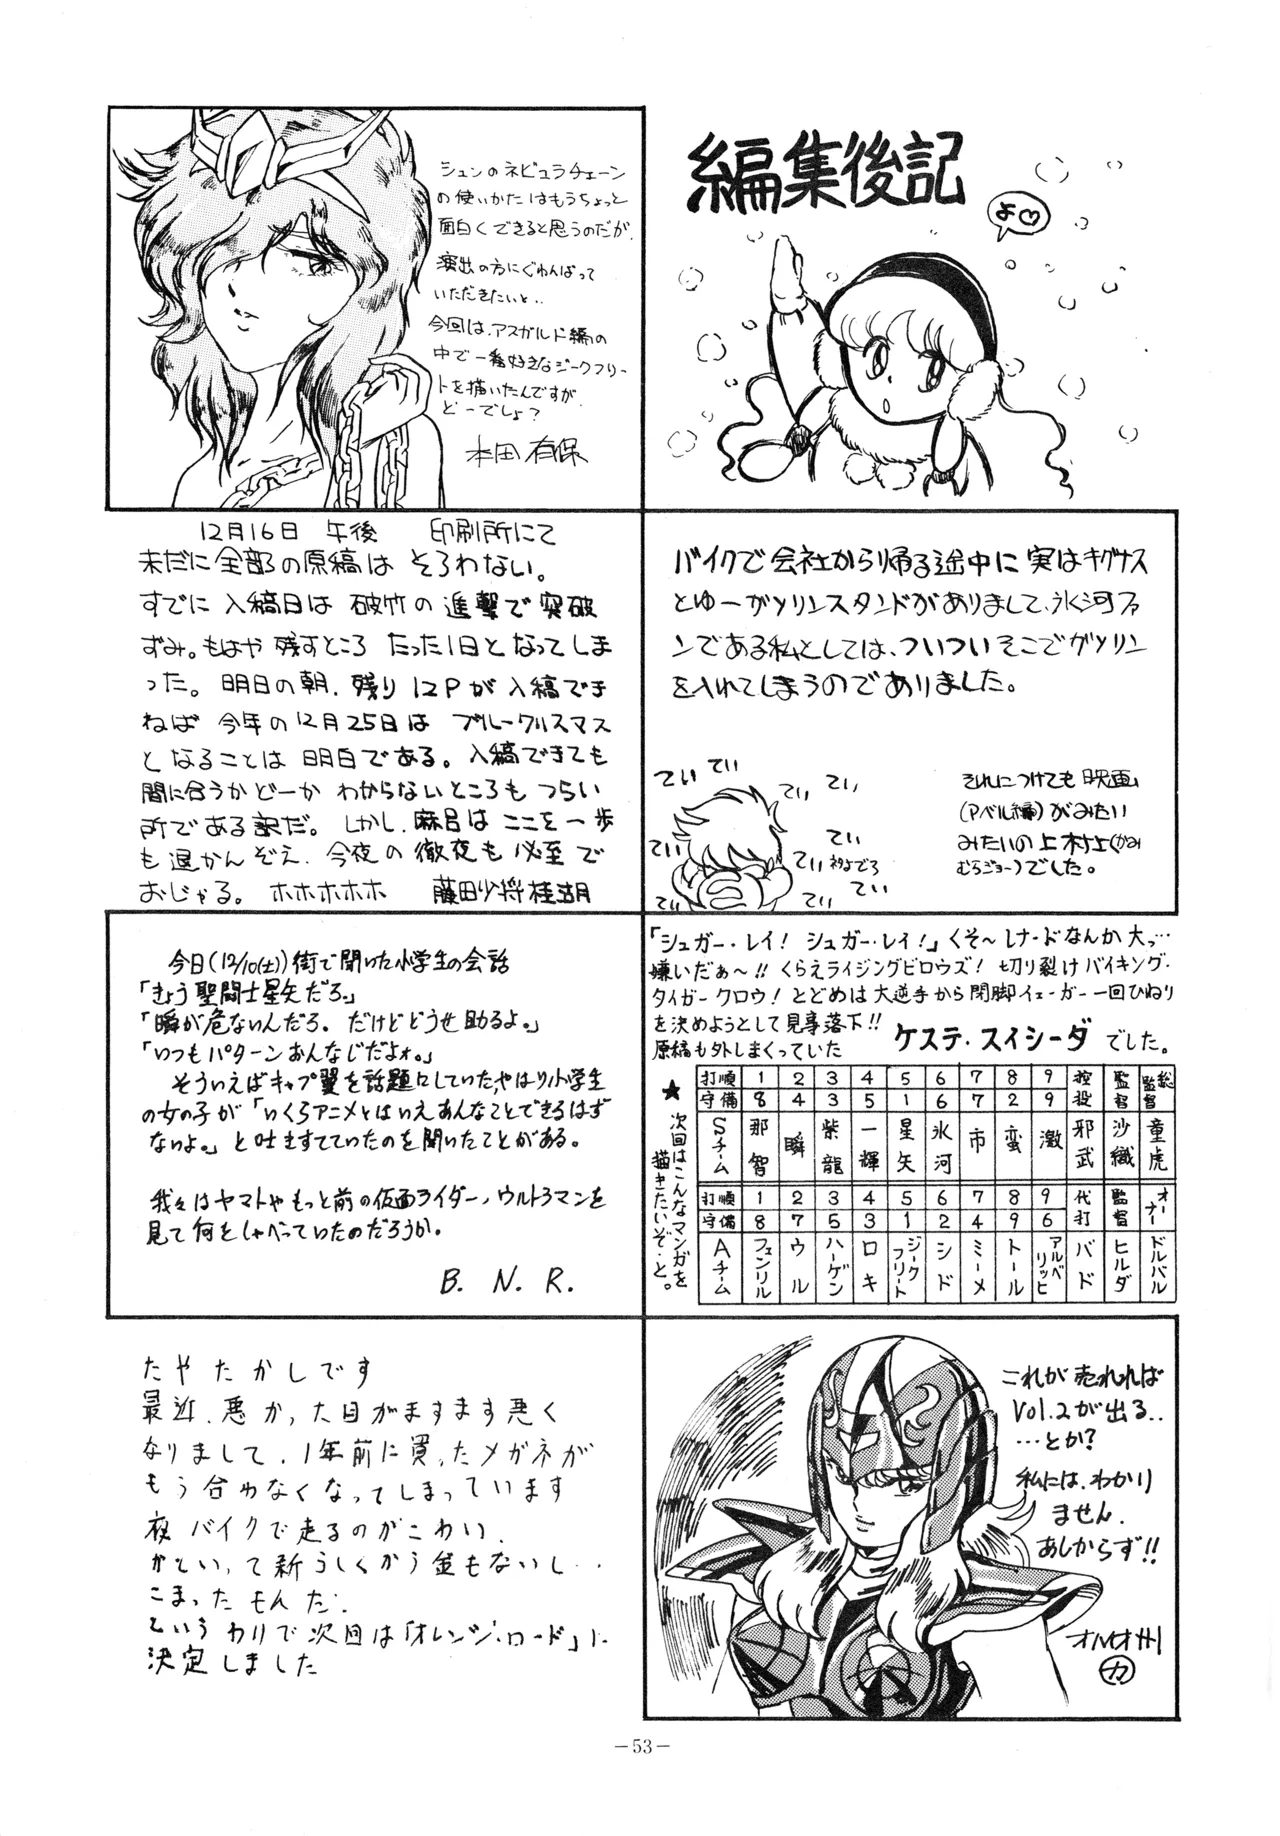 編集後記
よ♡
シュンのネビュラチェーン
の使いかたはもうちょっと
面白くできると思うのだが、
演出の方にぐわんばって
いただきたいと‥
今回は、アスガルド編の
中で一番好きなジークフリー
トを描いたんですが
どーでしょ？
本田有保
バイクで会社から帰る途中に実はキグナス
とゆーガソリンスタンドがありまして、氷河ファ
ンである私としては、ついついそこでガソリン
を入れてしまうのでありました。
てい てい てい てい てい てい てい てい てい てい
それにつけても映画
(アベル編)がみたい
みたいの上村上(かみ
むらジョー)でした。
12月16日 午後 印刷所にて
未だに全部の原稿は そろわない。
すでに入稿日は 破竹の進撃で突破
ずみ。もはや残すところ たった1日となってしま
った。明日の朝、残り12Pが入稿でき
ねば今年の12月25日は ブルークリスマス
となることは明白である。入稿できても
間に合うかどーか わからないところもつらい
所である訳だ。しかし、麻呂はここを一歩
も退かんぞえ、今夜の徹夜も必至で
おじゃる。ホホホホホ 藤田少将桂湖
「シュガー・レイ！ シュガー・レイ！」くそ〜レナードなんか大っ…
嫌いだぁ〜!! くらえライジングビロウズ！ 切り裂けバイキング・
タイガークロウ！とどめは大逆手から閉脚イェーガー一回ひねり
を決めようとして見事落下!!
原稿も外しまくっていた ケステ・スイシーダ でした。
★次回はこんなマンガを
描きたいぞ…と。
打順 1 2 3 4 5 6 7 8 9 控投 監督 総監督
守備 8 4 3 5 1 6 7 2 9
Sチーム 那智 瞬 紫龍 一輝 星矢 氷河 市 蛮 激 邪武 沙織 童虎
打順 1 2 3 4 5 6 7 8 9 代打 監督 オーナー
守備 8 7 5 3 1 2 4 9 6
Aチーム フェンリル ウル ハーゲン ロキ ジークフリート シド ミーメ トール アルベリッヒ バド ヒルダ ドルバル
今日(12/10(土))街で聞いた小学生の会話
「きょう聖闘士星矢だろ。」
「瞬が危ないんだろ。だけどどうせ助るよ。」
「いつもパターンおんなじだよォ。」
そういえばキャプ翼を話題にしていた、やはり小学生
の女の子が「いくらアニメとはいえあんなことできるはず
ないよ。」と吐きすてていたのを聞いたことがある。
我々はヤマトやもっと前の仮面ライダー、ウルトラマンを
見て何をしゃべっていたのだろうか。
B. N. R.
たやたかしです
最近、悪かった目がますます悪く
なりまして、1年前に買ったメガネが
もう合わなくなってしまっています
夜バイクで走るのがこわい、
かといって新らしくかう金もないし‥
こまったもんだ、
というわけで次回は「オレンジ・ロード」に
決定しました
これが売れれば
Vol.2が出る‥
…とか？
私には、わかり
ません、
あしからず!!
－53－